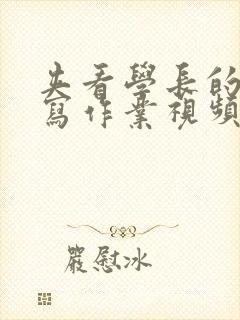 夫看學長的
寫作業視頻
嚴慰冰